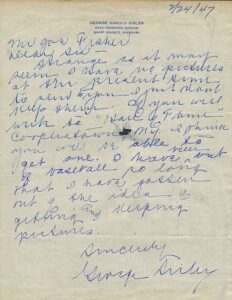 2/24/47
GEORGE HAROLD SISLER
SAINT LOUIS 5, MISSOURI
Mr Joe Fisher
Dear Sir
Strange as it may
seem I have no pictures
at the present time
to send you. I just don't
keep them. If you will
write to "Hall of Fame"
Cooperstown N.Y. I think
you will be able to
get one. I have been out
of baseball so long
that I have gotten
out of the idea of
getting and keeping
pictures.
Sincerely
George Sisler